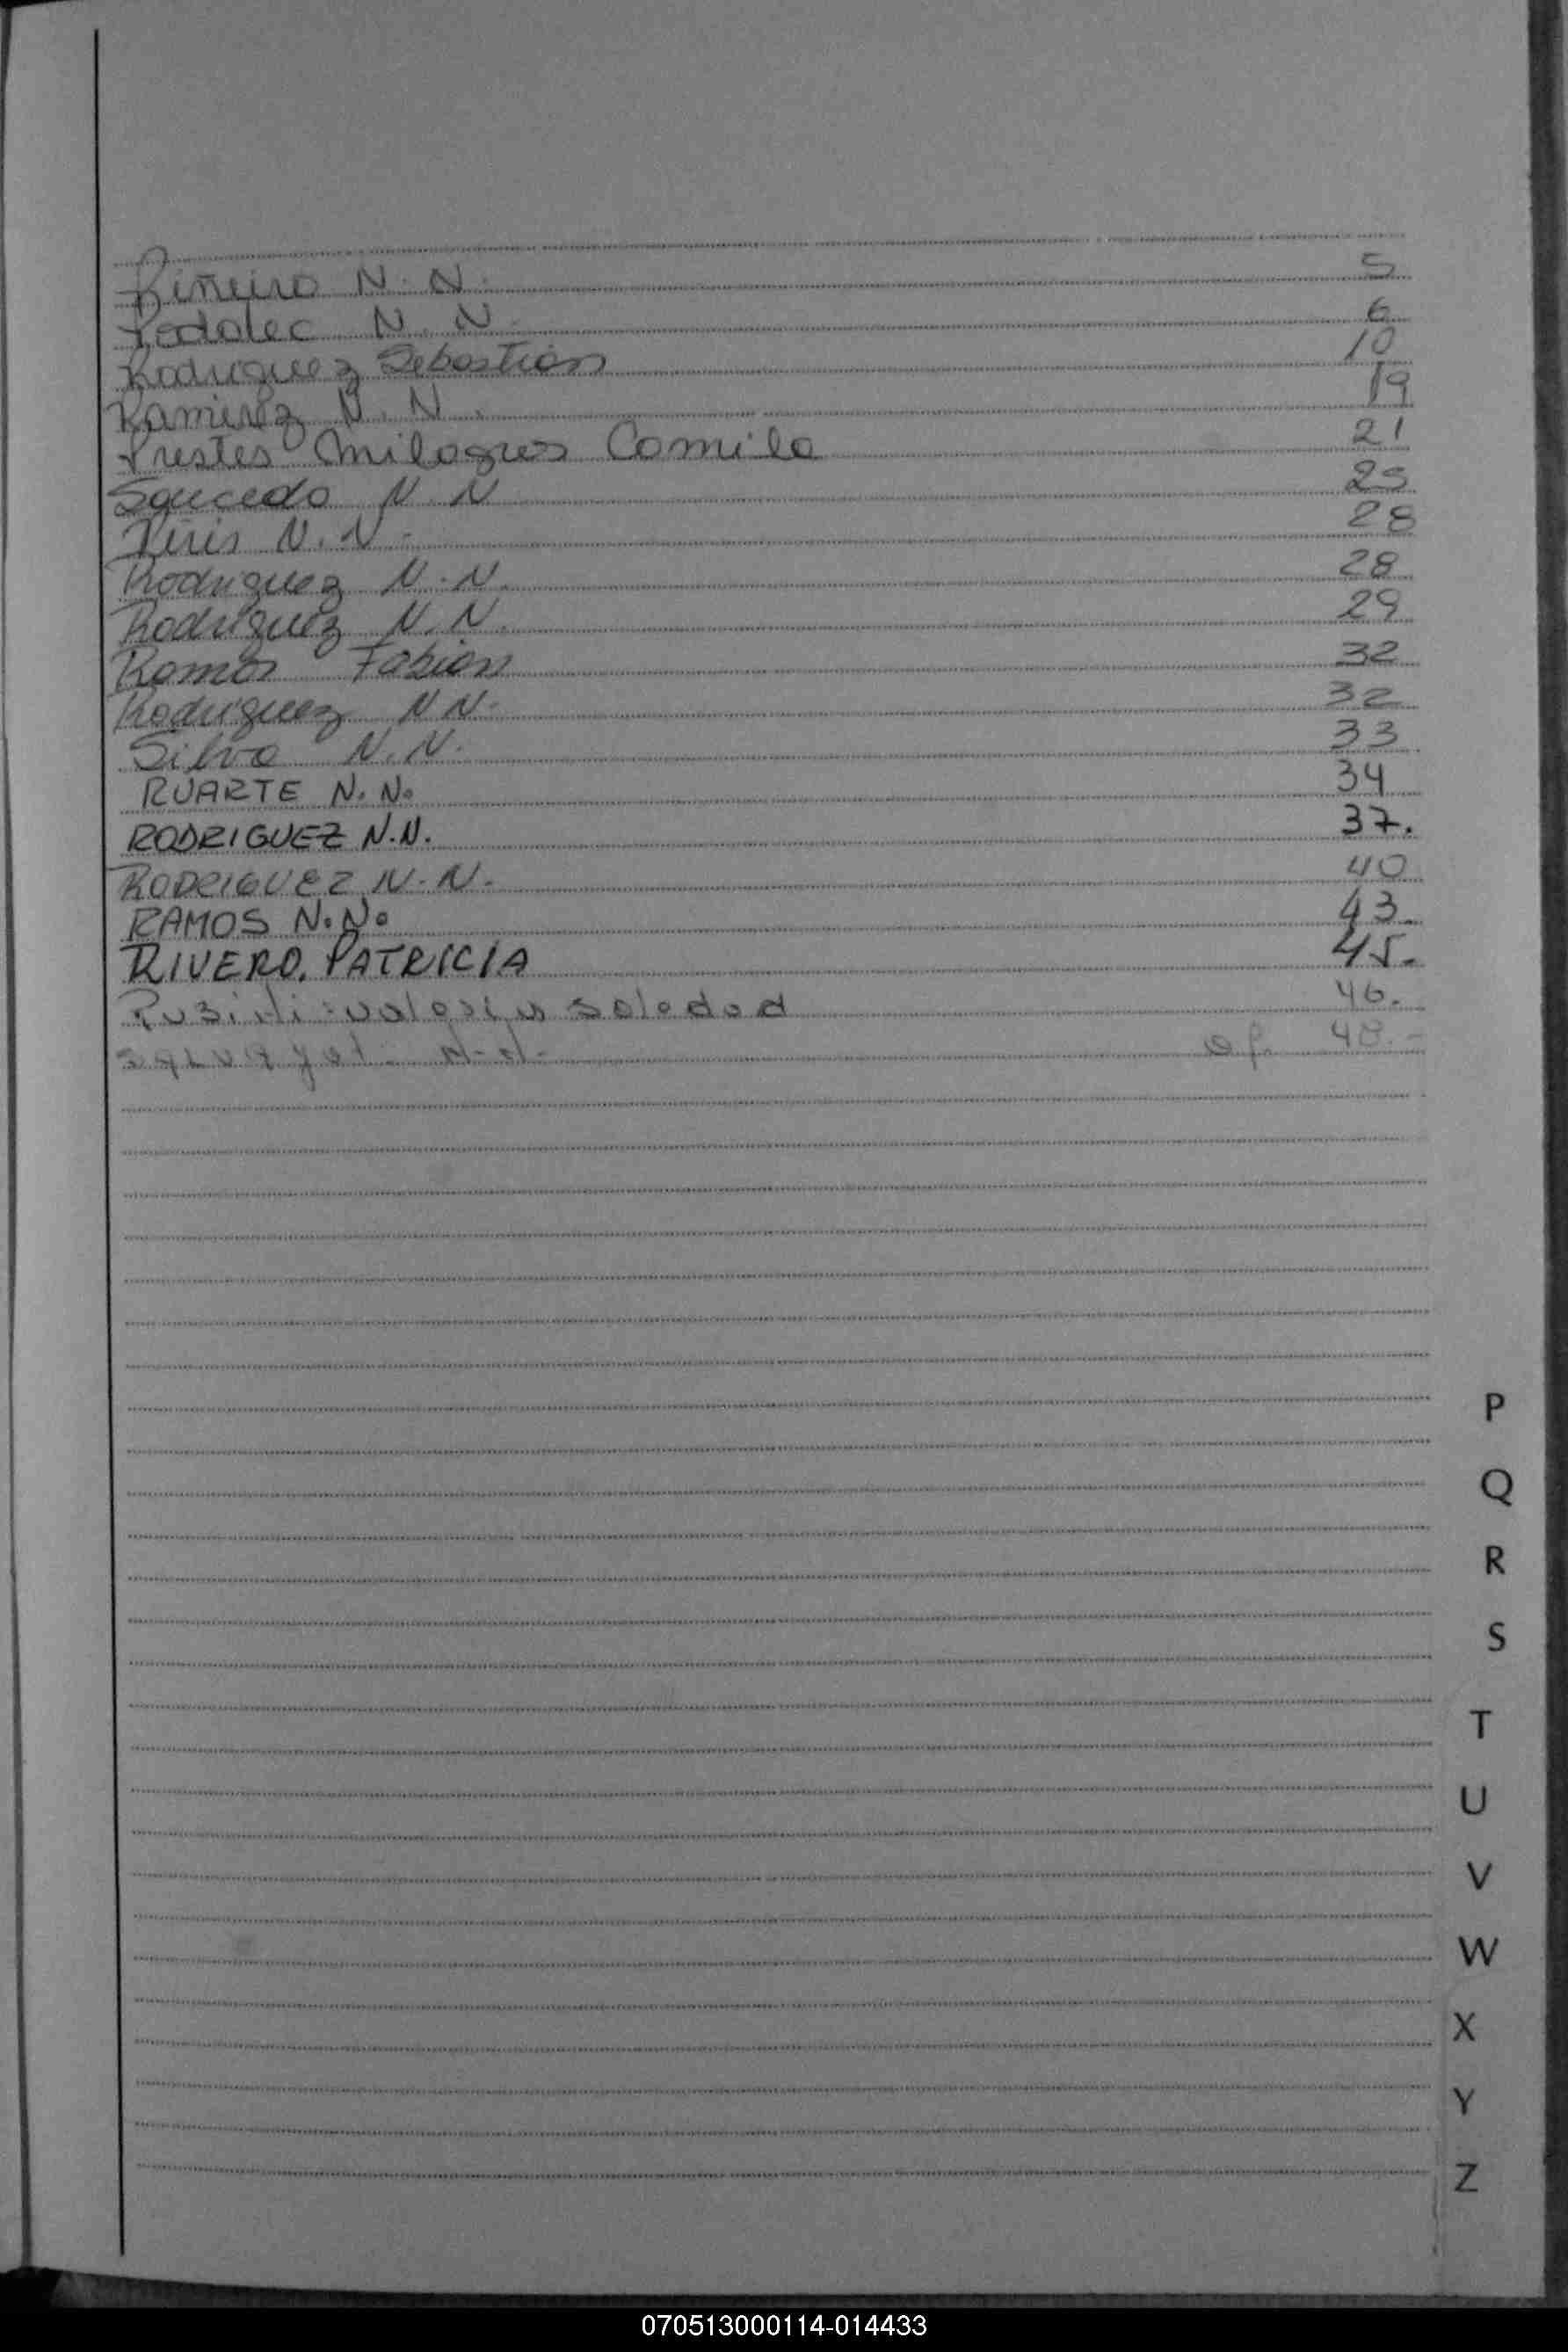 Piñeiro N. N. 5
N. N. 6
Rodriguez Sebastian 10
Ramirez N. N. 19
Prestes Milagros Camila 21
Saucedo N. N 25
N. N. 28
Rodriguez N. N. 28
Rodriguez N. N. 29
Ramos Fabian 32
Rodriguez N N. 32
Silva N. N. 33
RUARTE N. N. 34
RODRIGUEZ N.N. 37.
RODRIGUEZ N. N. 40
RAMOS N. N. 43.
RIVERO, PATRICIA 45.
soledad 46.
N-N- 48.-
P
Q
R
S
T
U
V
W
X
Y
Z
070513000114-014433